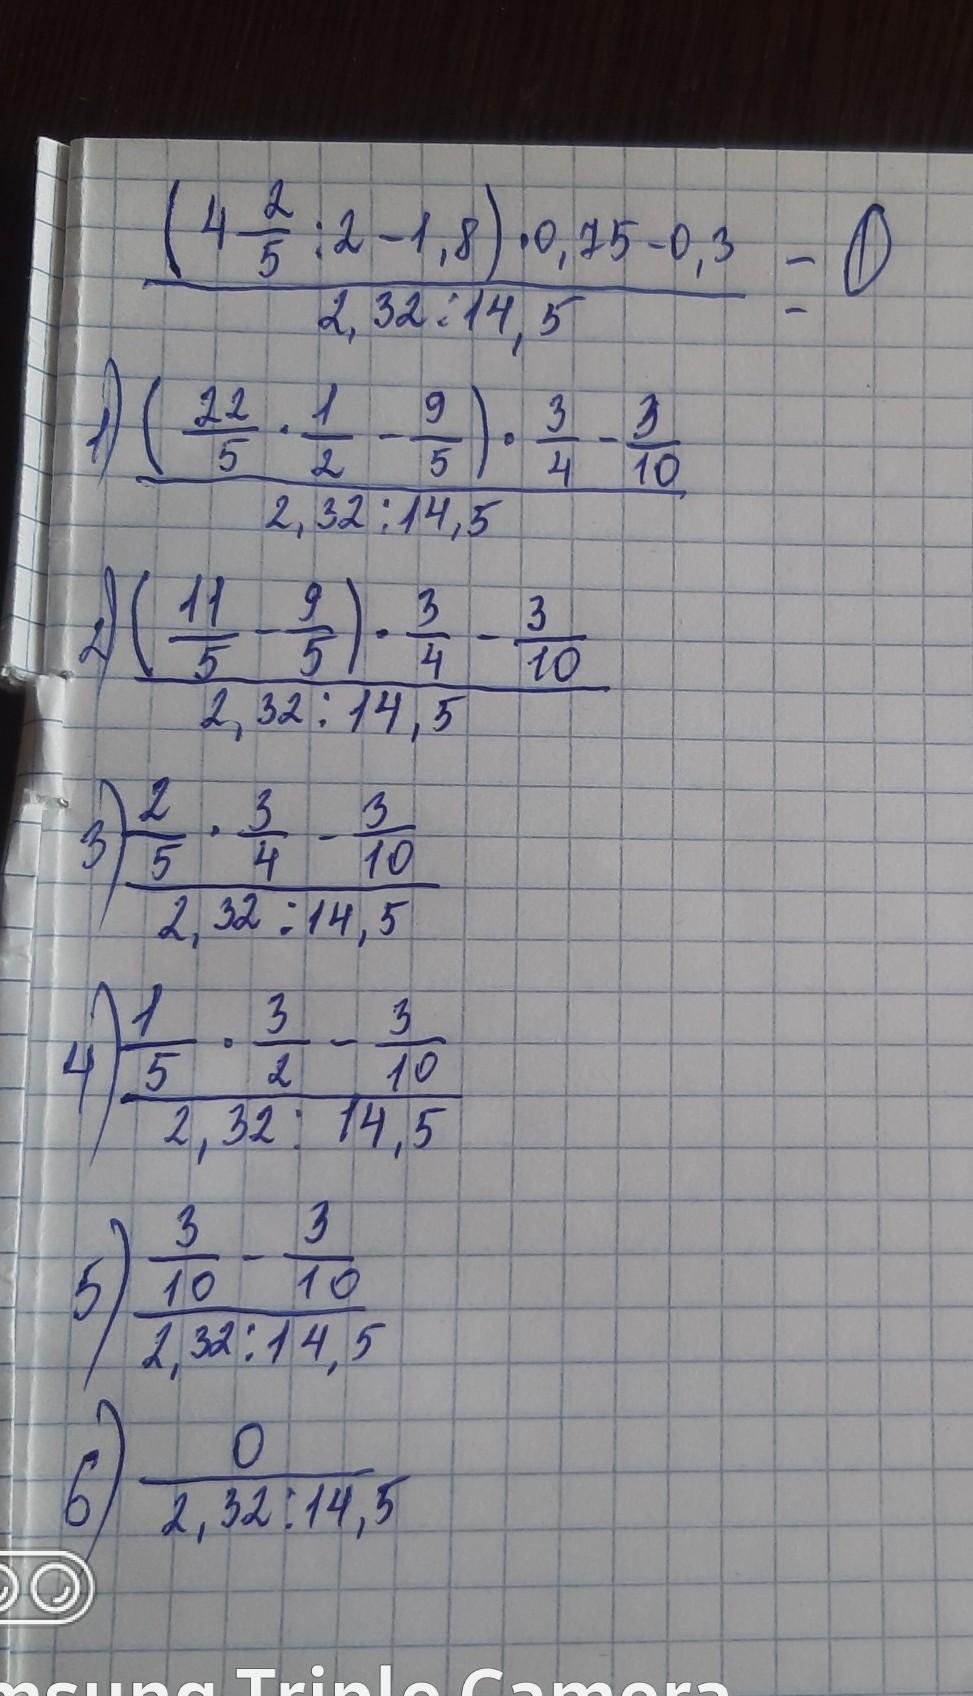 (4 2/5 : 2 - 1,8) · 0,75 - 0,3 / 2,32 : 14,5 = 0
1) (22/5 · 1/2 - 9/5) · 3/4 - 3/10 / 2,32 : 14,5
2) (11/5 - 9/5) · 3/4 - 3/10 / 2,32 : 14,5
3) 2/5 · 3/4 - 3/10 / 2,32 : 14,5
4) 1/5 · 3/2 - 3/10 / 2,32 : 14,5
5) 3/10 - 3/10 / 2,32 : 14,5
6) 0 / 2,32 : 14,5
msung Triple Camera